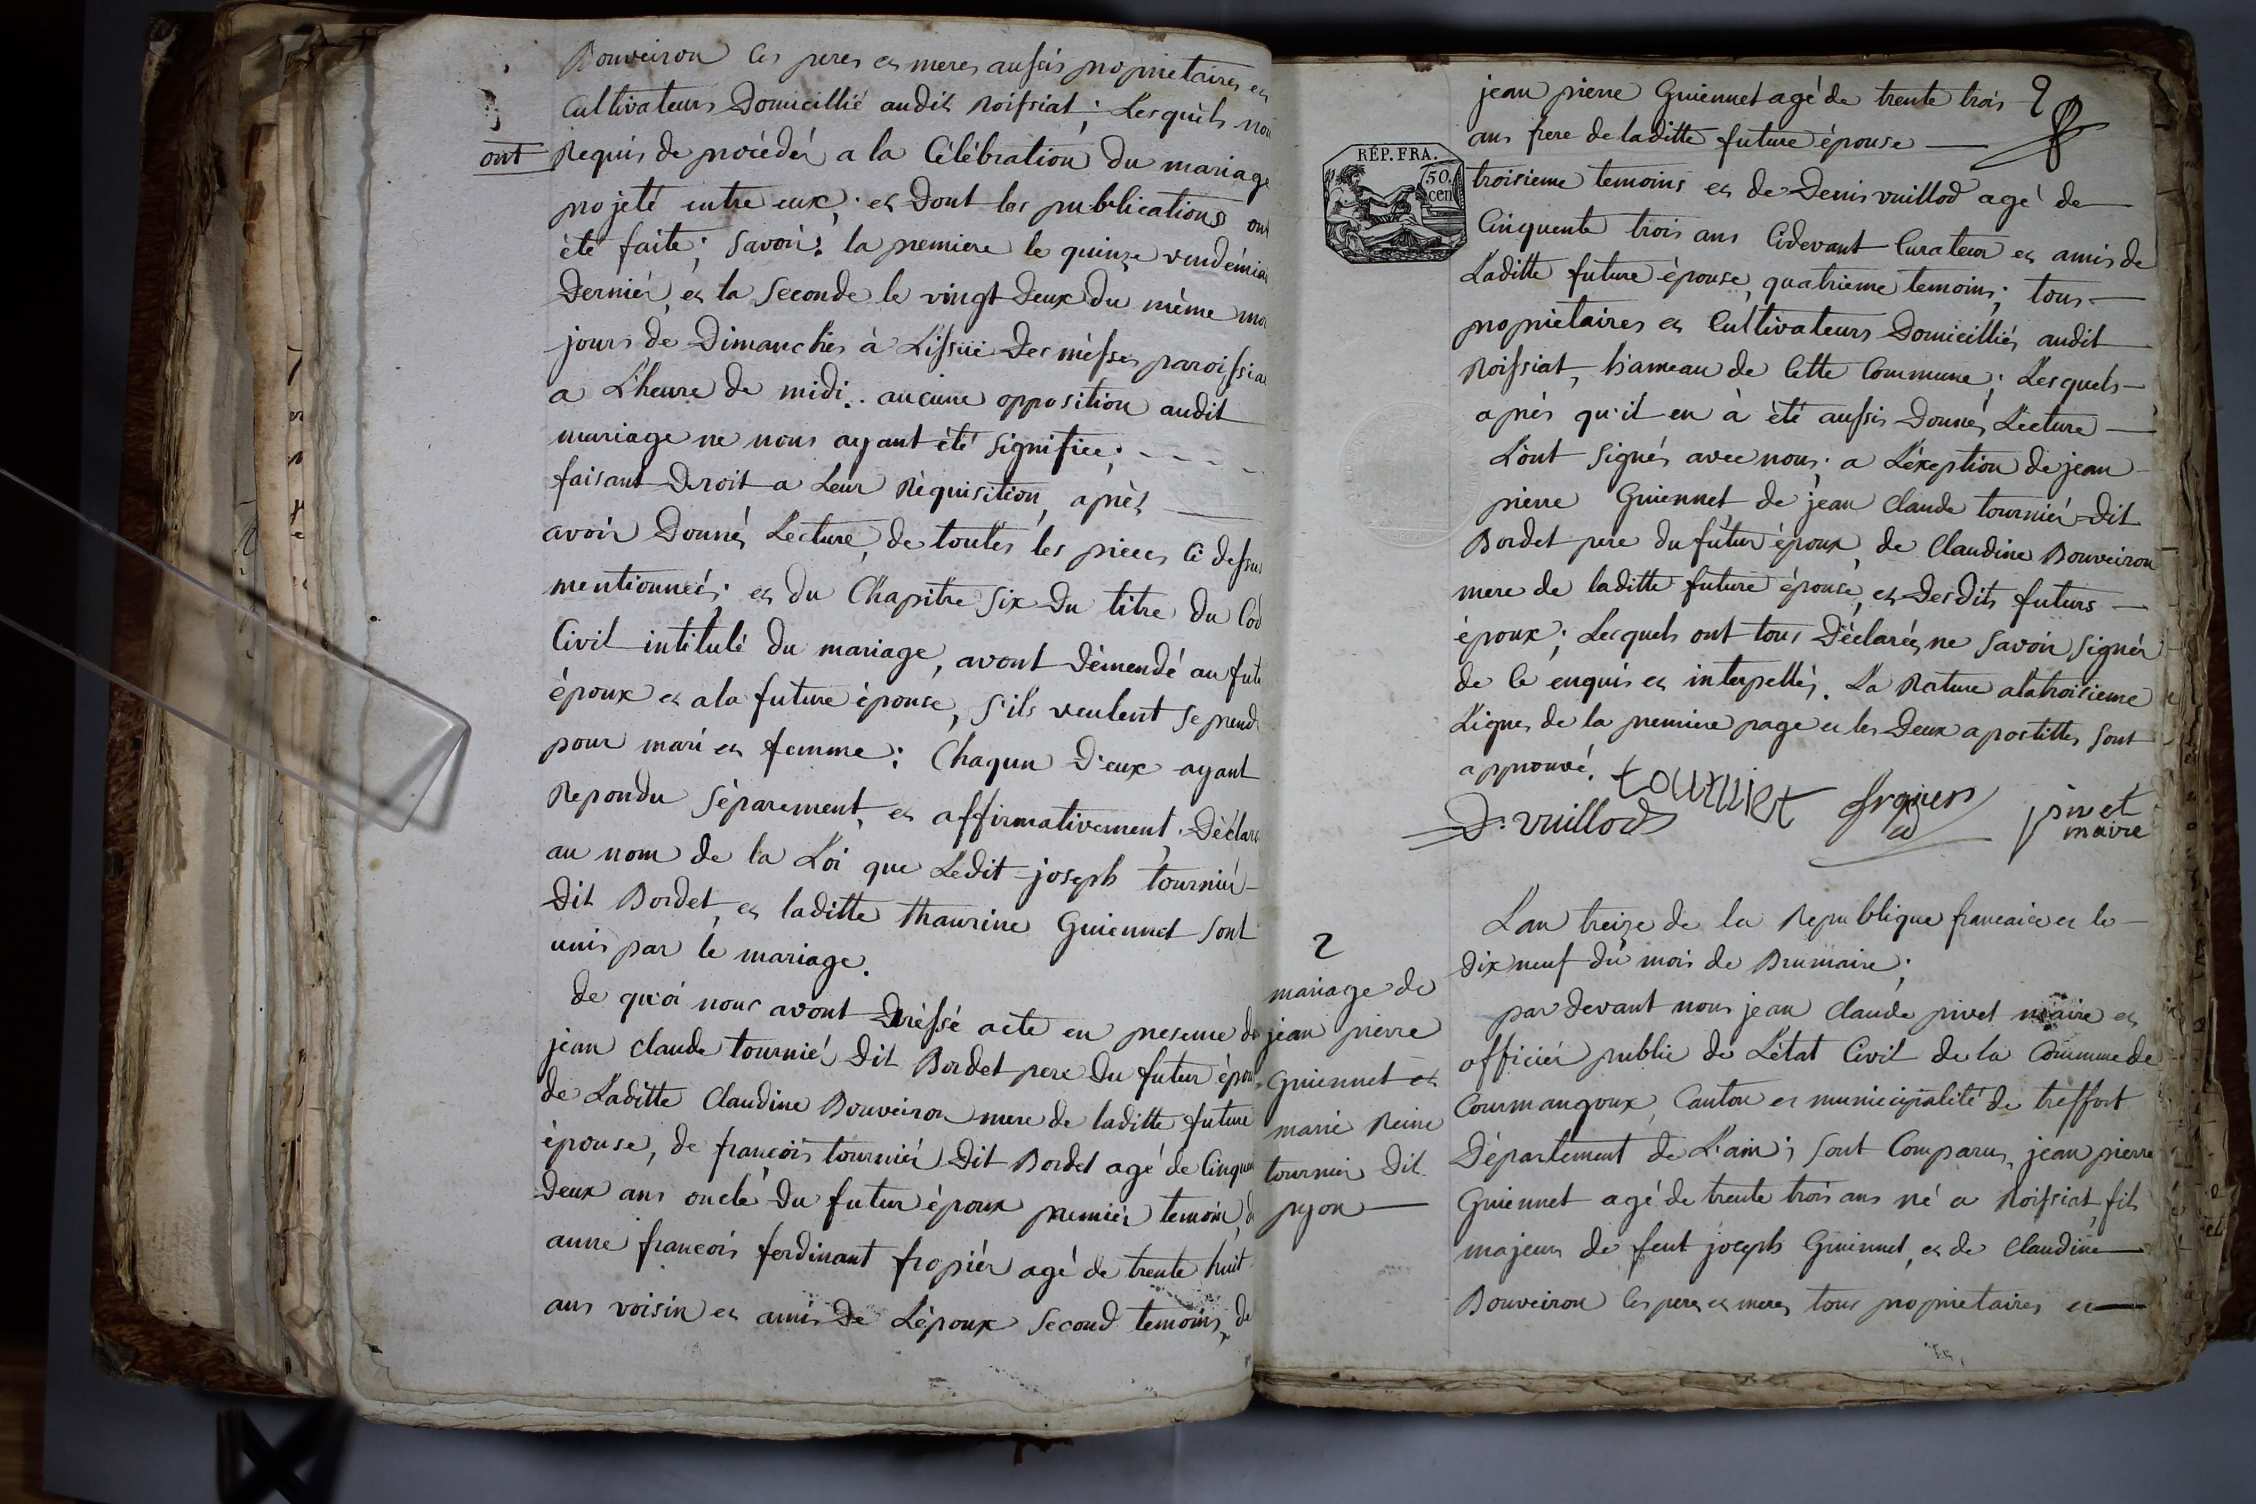 Bouveiron les peres et meres aussis proprietaires et
Cultivateurs Domicillié audit Roissiat; Lesquels nou
ont
Requis de procédér a la Célébration du mariage
projété entre eux; et Dont les publications ont
été faite; Savoir: la premiere le quinze vendémiai
Derniér, et la Seconde le vingt Deux du même moi
jours de Dimanches à L'issuë Des mèsses paroissia
a L'heure de midi.. aucune opposition audit
mariage ne nous ayant été Signifiée;
faisant Droit a Leur Réquisition, après
avoir Donnés Lecture, de toutes les pieces Ci dessu
mentionneés; et du Chapitre Six Du titre du Cod
Civil intitulé Du mariage, avont Démendé au futu
époux et a la future épouse, S'ils veulent Se prend
pour mari et femme: Chaqun D'eux ayant
Repondu Séparement, et affirmativement, Déclare
au nom de la Loi que Ledit joseph tourniér
Dit Bordet, et laditte thaurine Guiennet Sont
unis par le mariage.
de qu'oi nous avont Dréssé acte en presence de
jean claude tourniér Dit Bordet pere Du futur épou
de Laditte Claudine Bouveiron mere de laditte future
épouse, de francois tourniér Dit Bordet agé de Cinquan
Deux ans oncle Du futur époux premiér temoin, d
anne francois ferdinant fropiér agé de trente huit
ans voisin et amis De L'époux Second temoins, de
jean pierre Guiennet agé de trente trois
ans frere de laditte future épouse
RÉP. FRA.
50
cen
troisieme temoins et de Denis vuillod agé de
Cinquente trois ans Cidevant Curateur et amis de
Laditte future épouse, quatrieme temoins; tous
propriétaires et Cultivateurs Domicilliés audit
Roissiat, hameau de Cette Commune; Lesquels
après qu'il en à été aussis Donnés Lecture
L'ont Signés avec nous; a L'éxeption de jean
pierre Guiennet de jean Claude tourniér Dit
Bordet pere du futur époux, de Claudine Bouveiron
mere de laditte future épouse, et Desdits futurs
époux; Lesquels ont tous Déclarés ne Savoir Signér
de Ce enquis et interpellés. La Rature a la troisieme
Lignes de la premiere page et les Deux apostilles Sont
approuvé.
tournier
pivet
maire
D. vuillod
2
mariage de
jean pierre
Guiennet et
marie Reine
tournier dit
pyon
L'an treize de la Republique francaise et le
Dix neuf du mois de Brumaire;
par Devant nous jean Claude pivet maire et
officiér public de L'état Civil de la Commune de
Courmangoux, Canton et municipalité de treffort
Département de L'ain; Sont Comparus, jean pierre
Guiennet agé de trente trois ans né a Roissiat, fils
majeur de feut joseph Guiennet, et de Claudine
Bouveiron les peres et meres tous proprietaires et